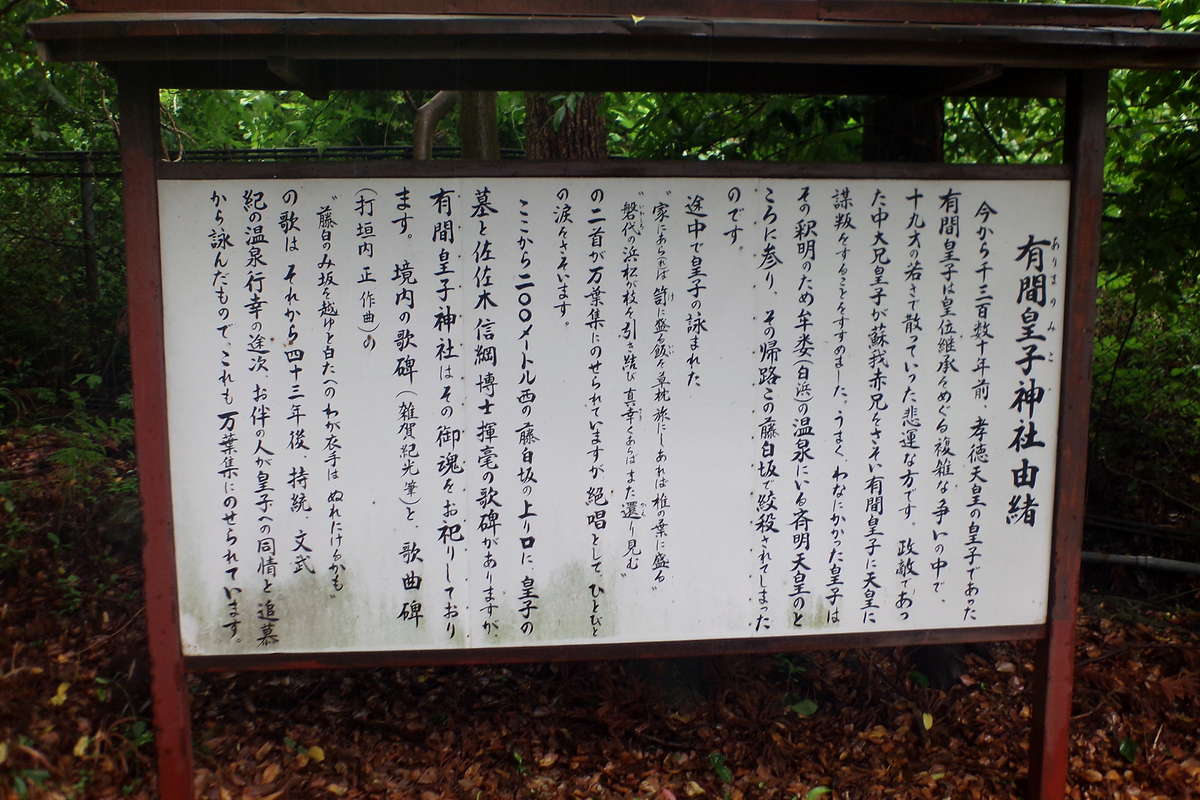 有間皇子神社由緒
ありまのみこ
今から千三百数十年前、孝徳天皇の皇子であった
有間皇子は皇位継承をめぐる複雑な争いの中で、
十九才の若さで散っていった悲運な方です。政敵であっ
た中大兄皇子が蘇我赤兄をさそい有間皇子に天皇に
謀叛をすることをすすめました。うまく、わなにかかった皇子は
その釈明のため牟婁(白浜)の温泉にいる斉明天皇のと
ころに参り、その帰路この藤白坂で絞殺されてしまった
のです。
途中で皇子の詠まれた
〝家にあれば笥に盛る飯を草枕旅にしあれば椎の葉に盛る〟
〝磐代の浜松が枝を引き結び真幸くあらばまた還り見む〟
の二首が万葉集にのせられていますが、絶唱として、ひとびと
の涙をさそいます。
ここから二〇〇メートル西の藤白坂の上り口に、皇子の
墓と佐佐木信綱博士揮毫の歌碑がありますが、
有間皇子神社はその御魂をお祀りしており
ます。境内の歌碑(雑賀紀光筆)と、歌曲碑
(打垣内正作曲)の
〝藤白のみ坂を越ゆと白たへのわが衣手は ぬれにけるかも〟
の歌は それから四十三年後、持統、文武
紀の温泉行幸の途次、お伴の人が皇子への同情と追慕
から詠んだもので、これも万葉集にのせられています。